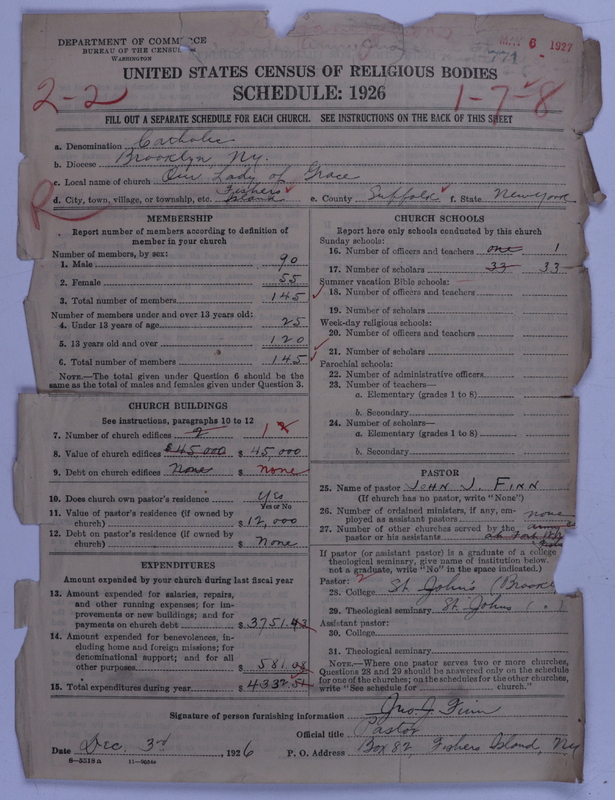 DEPARTMENT OF COMMERCE
BUREAU OF THE CENSUS
WASHINGTON
MAY 6 1927
UNITED STATES CENSUS OF RELIGIOUS BODIES
SCHEDULE: 1926
2-2
1-7-8
FILL OUT A SEPARATE SCHEDULE FOR EACH CHURCH. SEE INSTRUCTIONS ON THE BACK OF THIS SHEET
a. Denomination Catholic
b. Diocese Brooklyn, Ny.
c. Local name of church Our Lady of Grace
d. City, town, village, or township, etc. Fishers Island e. County Suffolk f. State New York
R
MEMBERSHIP
Report number of members according to definition of member in your church
Number of members, by sex:
1. Male 90
2. Female 55
3. Total number of members 145
Number of members under and over 13 years old:
4. Under 13 years of age 25
5. 13 years old and over 120
6. Total number of members 145
NOTE.—The total given under Question 6 should be the same as the total of males and females given under Question 3.
CHURCH BUILDINGS
See instructions, paragraphs 10 to 12
7. Number of church edifices 2 1
8. Value of church edifices $45,000 $ 45,000
9. Debt on church edifices None $ none
10. Does church own pastor's residence Yes
Yes or No
11. Value of pastor's residence (if owned by church) $ 12,000
12. Debt on pastor's residence (if owned by church) $ None
EXPENDITURES
Amount expended by your church during last fiscal year
13. Amount expended for salaries, repairs, and other running expenses; for improvements or new buildings; and for payments on church debt $ 3751.43
14. Amount expended for benevolences, including home and foreign missions; for denominational support; and for all other purposes $ 581.08
15. Total expenditures during year $ 4332.51
CHURCH SCHOOLS
Report here only schools conducted by this church
Sunday schools:
16. Number of officers and teachers one 1
17. Number of scholars 33 33
Summer vacation Bible schools:
18. Number of officers and teachers
19. Number of scholars
Week-day religious schools:
20. Number of officers and teachers
21. Number of scholars
Parochial schools:
22. Number of administrative officers
23. Number of teachers—
a. Elementary (grades 1 to 8)
b. Secondary
24. Number of scholars—
a. Elementary (grades 1 to 8)
b. Secondary
PASTOR
25. Name of pastor JOHN J. FINN
(If church has no pastor, write "None")
26. Number of ordained ministers, if any, employed as assistant pastors none
27. Number of other churches served by the pastor or his assistants
If pastor (or assistant pastor) is a graduate of a college theological seminary, give name of institution below. not a graduate, write "No" in the space indicated.)
Pastor: 2
28. College St. John's (Brook
29. Theological seminary St. Johns ( " )
Assistant pastor:
30. College
31. Theological seminary
NOTE.—Where one pastor serves two or more churches, Questions 28 and 29 should be answered only on the schedule for one of the churches; on the schedules for the other churches, write "See schedule for church."
Signature of person furnishing information Jno J Finn
Official title Pastor
Date Dec. 3rd, 1926 P. O. Address Box 82, Fishers Island, Ny
8—5518a 11—9034